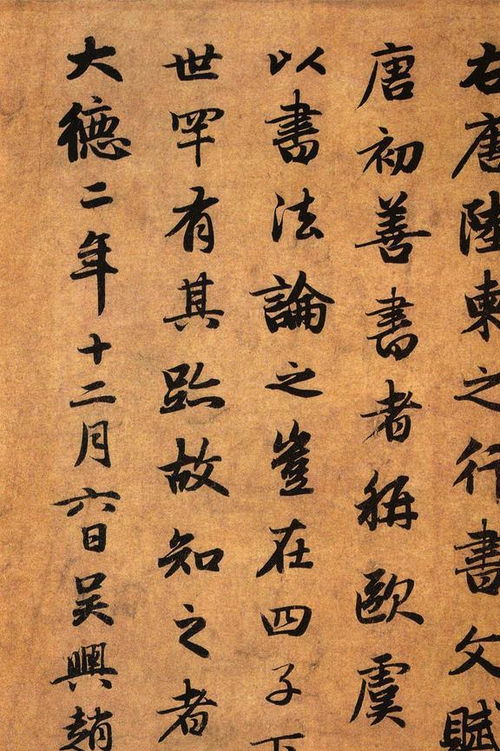 右唐陸柬之行書文賦
唐初善書者稱歐虞
以書法論之豈在四子下
世罕有其跡故知之者
大德二年十二月六日吴興趙